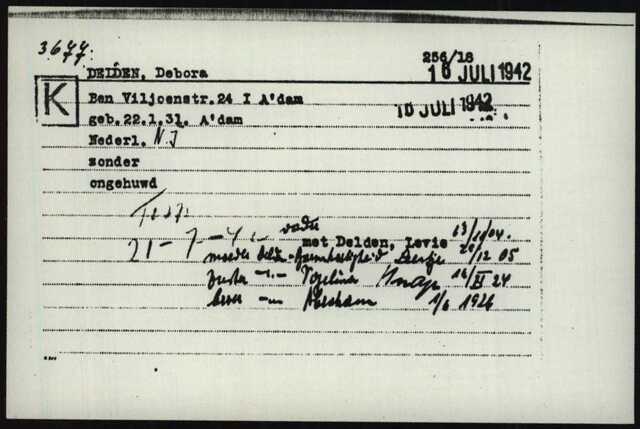 3677.
DELDEN, Debora
256/18
16 JULI 1942
K
Ben Viljoenstr. 24 I A'dam
16 JULI 1942
geb. 22.1.31. A'dam
Nederl. N.J
zonder
ongehuwd
21-7-42 vader
met Delden, Levie
moeder Bertje 12 05
zuster 24
broer Abraham 1/6 1926